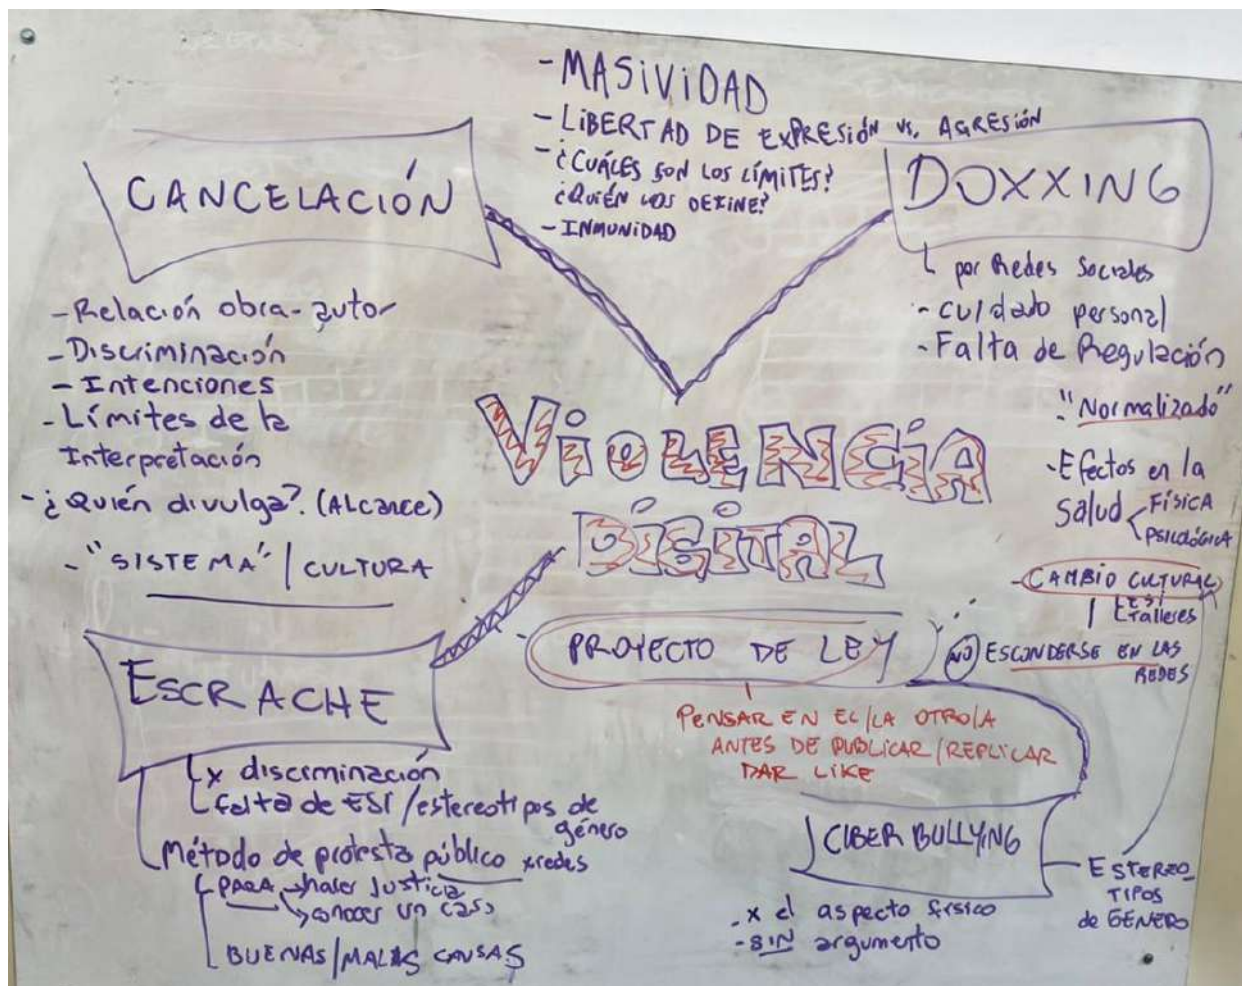 - MASIVIDAD
- LIBERTAD DE EXPRESIÓN VS. AGRESIÓN
- ¿CUÁLES SON LOS LÍMITES?
¿QUIÉN LOS DEFINE?
- INMUNIDAD
CANCELACIÓN
- Relación obra-autor
- Discriminación
- Intenciones
- Límites de la
Interpretación
- ¿Quién divulga? (ALcance)
- "SISTEMA" / CULTURA
DOXXING
por Redes Sociales
- Cuidado personal
- Falta de Regulación
- "Normalizado"
- Efectos en la
Salud < FÍSICA
PSICOLÓGICA
- CAMBIO CULTURAL
ESI
Talleres
VIOLENCIA
DIGITAL
- PROYECTO DE LEY
NO ESCONDERSE EN LAS
REDES
PENSAR EN EL/LA OTRO/A
ANTES DE PUBLICAR/REPLICAR
DAR LIKE
ESCRACHE
x discriminación
falta de ESI/estereotipos de
género
Método de protesta público x redes
PARA → hacer Justicia
→ conocer un caso
BUENAS/MALAS CAUSAS
CIBER BULLYING
- x el aspecto físico
- SIN argumento
ESTEREO_
TIPOS
de GÉNERO